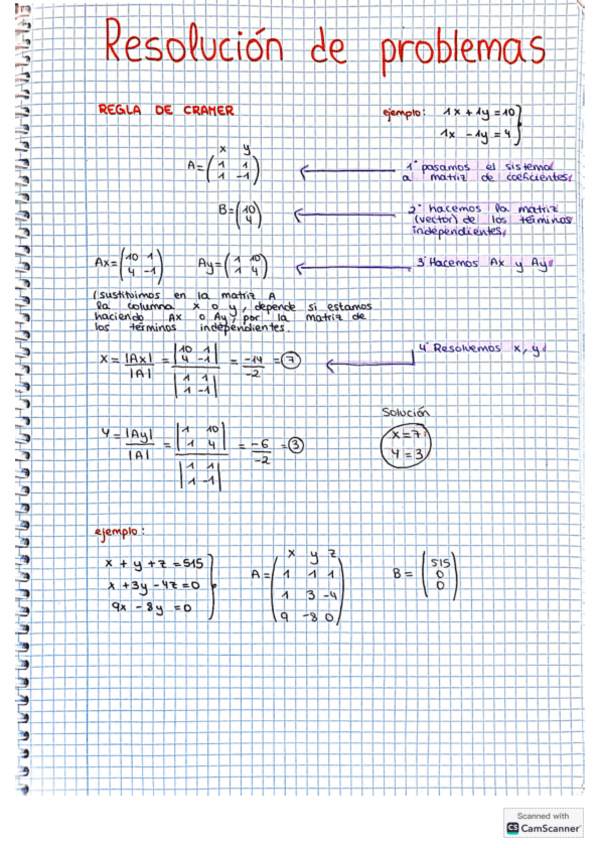 Resolución de problemas
REGLA DE CRAMER
ejemplo: 1x + 1y = 10
1x - 1y = 4
x y
A = (1 1
1 -1)
1º pasamos el sistema
a matriz de coeficientes.
B = (10
4)
2º hacemos la matriz
(vector) de los términos
independientes.
Ax = (10 1
4 -1)
Ay = (1 10
1 4)
3º Hacemos Ax y Ay
(sustituimos en la matriz A
la columna x o y, depende si estamos
haciendo Ax o Ay, por la matriz de
los términos independientes.
4º Resolvemos x, y
x = |Ax| / |A| = |10 1 4 -1| / |1 1 1 -1| = -14 / -2 = 7
Y = |Ay| / |A| = |1 10 1 4| / |1 1 1 -1| = -6 / -2 = 3
Solución
x = 7
Y = 3
ejemplo:
x + y + z = 515
x + 3y - 4z = 0
9x - 8y = 0
x y z
A = (1 1 1
1 3 -4
9 -8 0)
B = (515
0
0)
Scanned with
CS CamScanner